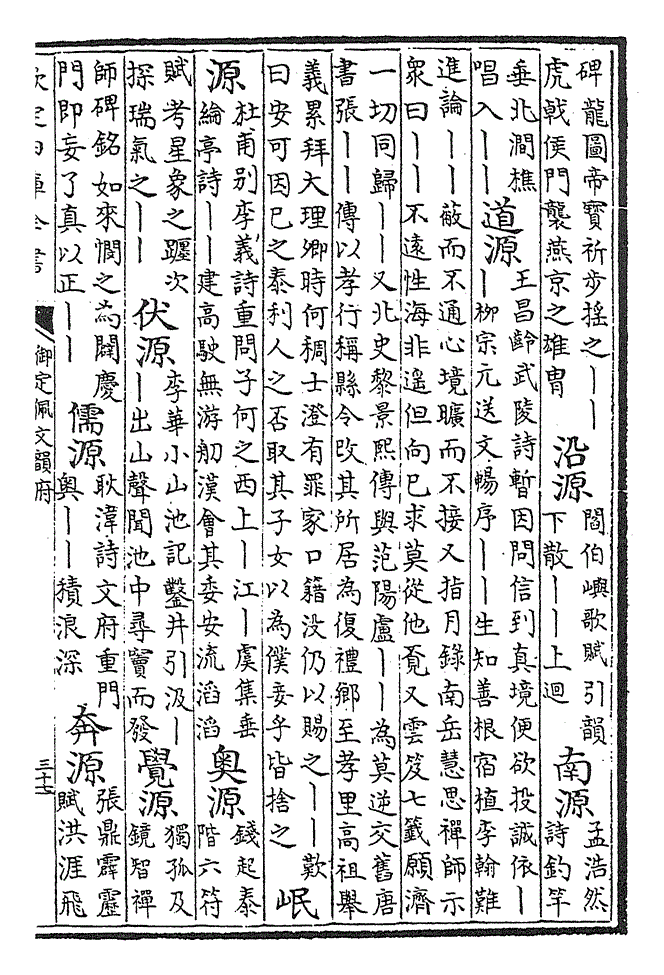 碑龍圖帝寶祈步揺之丨丨
虎戟侯門襲燕京之雄胄
沿源
閻伯嶼歌賦引韻
下散丨丨上迴
南源
孟浩然
詩釣竿
垂北澗樵
唱入丨丨
道源
王昌齡武陵詩暫因問信到真境便欲投誠依丨
丨柳宗元送文暢序丨丨生知善根宿植李翰難
進論丨丨蔽而不通心境曠而不接又指月錄南岳慧思禪師示
衆曰丨丨不遠性海非遥但向已求莫從他覔又雲笈七籤願濟
一切同歸丨丨又北史黎景熙傳與范陽盧丨丨為莫逆交舊唐
書張丨丨傳以孝行稱縣令改其所居為復禮鄉至孝里高祖舉
義累拜大理卿時何稠士澄有罪家口籍没仍以賜之丨丨歎
曰安可因已之泰利人之否取其子女以為僕妾乎皆捨之
岷
源
杜甫别李義詩重問子何之西上丨江丨虞集垂
綸亭詩丨丨建高駛無游舠漢會其委安流滔滔
奥源
錢起泰
階六符
賦考星象之躔次
探瑞氣之丨丨
伏源
李華小山池記鑿井引汲丨
丨出山聲聞池中尋竇而發
覺源
獨孤及
鏡智禪
師碑銘如來憫之為闢慶
門即妄了真以正丨丨
儒源
耿湋詩文府重門
奥丨丨積浪深
奔源
張鼎霹靂
賦洪涯飛
欽定四庫全書
御定佩文韻府
三十七